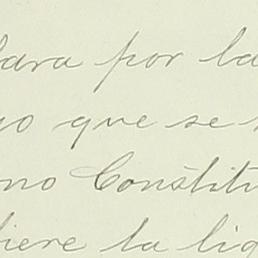 para por la
yo que se
no Constitu
biere la liq